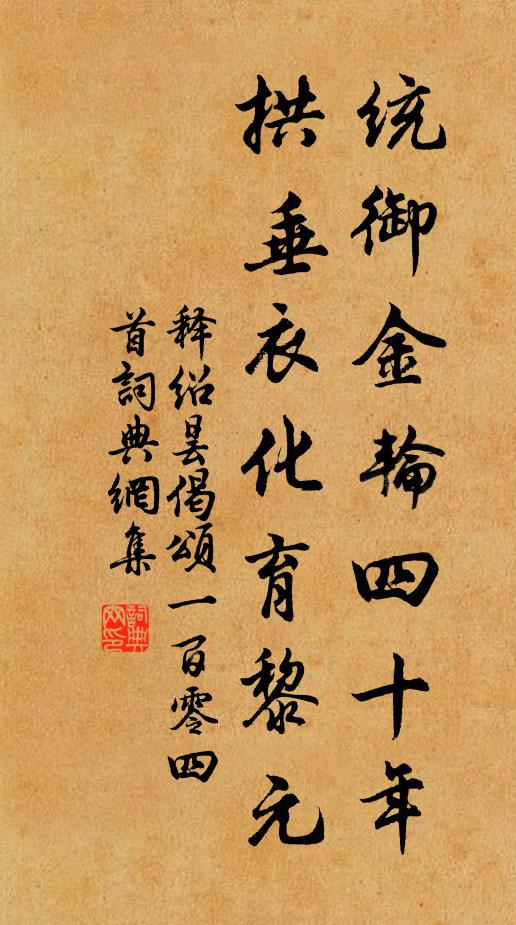 统御金輪四十年
拱垂衣化育黎元
释绍昙偈頌一百零四
首詞典網集
詞典网印